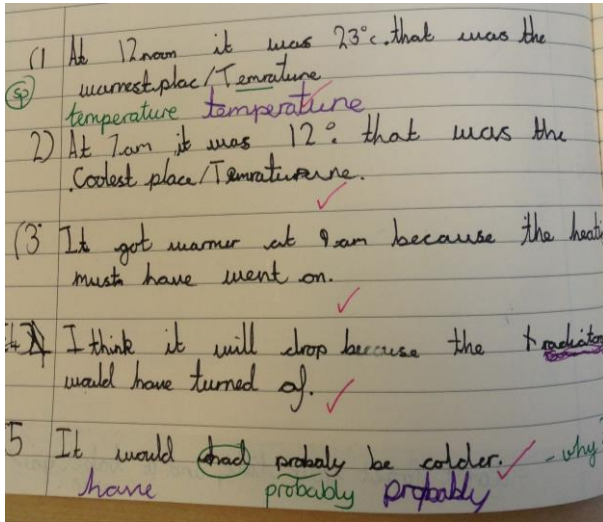 (1 At 12noon it was 23°c. that was the
sp warmest plac/Temrature
temperature temperature
2) At 7am it was 12° that was the
Coolest place/Temraturerne.
(3 It got warmer at 9am because the heati
must have went on.
I think it will drop because the radiator
would have turned of.
5 It would had probaly be colder. - why?
have probably probably